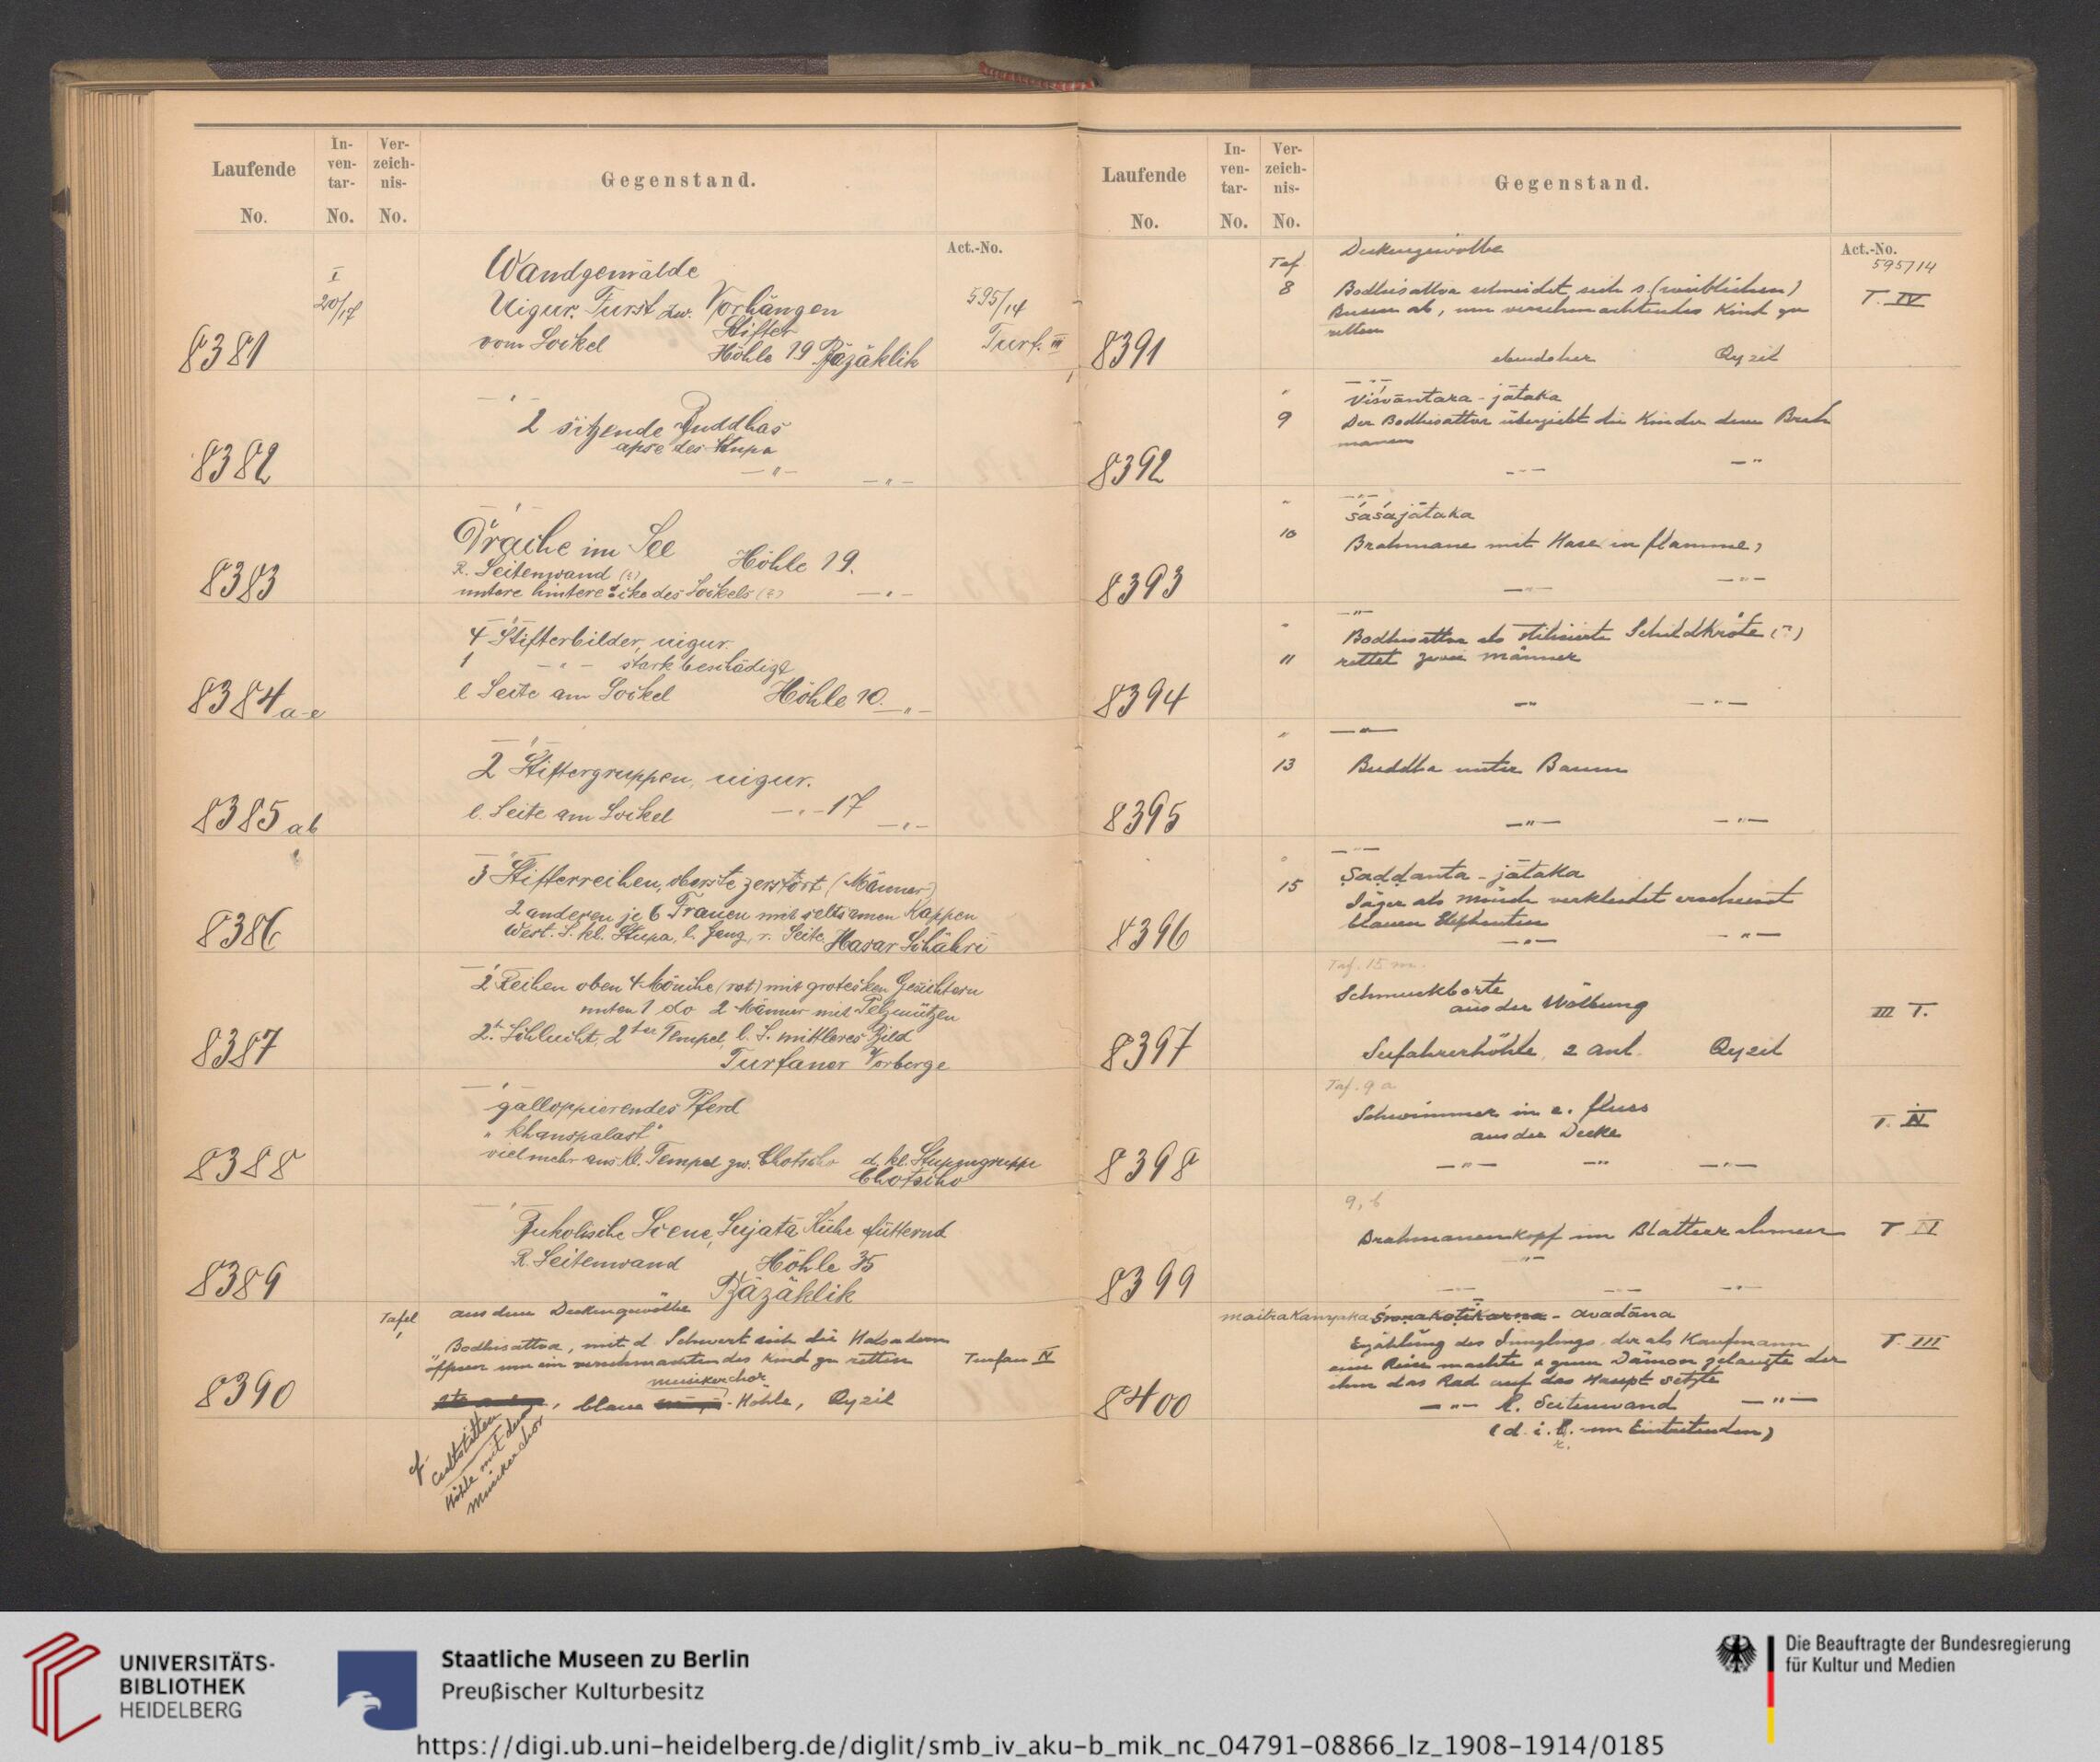 Laufende No.
In-ven-tar- No.
Ver-zeich-nis- No.
Gegenstand.
Act.-No.
I
20/17
Wandgemälde
Uigur. Fürst zw. Vorhängen
595/14
Stifter
vom Sockel
Höhle 19 Bäzäklik
Turf. III
8381
— " —
2 sitzende Buddhas
apse des Stupa
— " —
— " —
8382
— " —
Drache im See
Höhle 19.
R. Seitenwand (?)
untere hintere Ecke des Sockels (?)
— " —
8383
— " —
4 Stifterbilder, uigur.
1 — " — stark beschädigt
l Seite am Sockel
Höhle 10.
— " —
8384 a-e
— " —
2 Stiftergruppen, uigur.
l. Seite am Sockel
— " — 17
— " —
8385 ab
— " —
3 Stifterreihen, oberste zerstört (Männer)
2 anderen je 6 Frauen mit seltsamen Kappen
West. S. kl. Stupa, l. Gang, r. Seite Hasar Schähri
8386
— " —
2 Reihen oben 4 Mönche (rot) mit grotesken Gesichtern
unten 1 do 2 Männer mit Pelzmützen
2t. Schlucht, 2ter Tempel, l. S. mittleres Bild
Turfaner Vorberge
8387
— " —
galloppierendes Pferd
"Khanspalast"
vielmehr aus kl. Tempel zw. Chotscho d. kl. Stupengruppe
Chotscho
8388
— " —
Bukolische Scene, Sujata Kühe fütternd
R. Seitenwand
Höhle 35
Bäzäklik
8389
Tafel
aus dem Deckengewölbe
Bodhisattva, mit d. Schwert sich die Halsadern
öffnen um ein verschmachtendes Kind zu retten
Turfan IV
musikerchor
blaue -Höhle, Qyzil
8390
cf.
Cultstätten
Höhle mit dem
Musikerchor
Laufende No.
In-ven-tar- No.
Ver-zeich-nis- No.
Gegenstand.
Act.-No.
Taf
Deckengewölbe
595/14
8
Bodhisattva schneidet sich s. (weiblichen)
T. IV
Busen ab, um verschmachtendes Kind zu
retten
ebendaher
Qyzil
8391
"
— " —
Viśvāntara-jātaka
9
Der Bodhisattva übergiebt die Kinder dem Brah
manen
— " —
— "
8392
"
— " —
śaśajātaka
10
Brahmane mit Hase in flammen
— " —
— " —
8393
"
— " —
Bodhisattva als stilisierte Schildkröte (?)
11
rettet zwei Männer
— " —
— " —
8394
"
— " —
13
Buddha unter Baum
— " —
— " —
8395
"
— " —
15
Ṣaḍḍanta-jātaka
Jäger als Mönch verkleidet erscheint
blauen Elephanten
— " —
— " —
8396
Taf. 15 m.
Schmuckborte
aus der Wölbung
III T.
Seefahrerhöhle, 2 Anl.
Qyzil
8397
Taf. 9 a
Schwimmer in e. fluss
aus der Decke
T. IV
— " —
— " —
— " —
8398
9, b
Brahmanenkopf im Blätterrahmen
T IV
— " —
— " —
8399
maitrakanyaka Śronakoṭikarna - avadāna
Erzählung des Jünglings der als Kaufmann
T. III
eine Reise machte & zum Dämon gelangte der
ihm das Rad auf das Haupt setzte
— " — l. Seitenwand
— " —
8400
(d. i. l. vom Eintretenden)
r.
UNIVERSITÄTS-
BIBLIOTHEK
HEIDELBERG
Staatliche Museen zu Berlin
Preußischer Kulturbesitz
Die Beauftragte der Bundesregierung
für Kultur und Medien
https://digi.ub.uni-heidelberg.de/diglit/smb_iv_aku-b_mik_nc_04791-08866_lz_1908-1914/0185